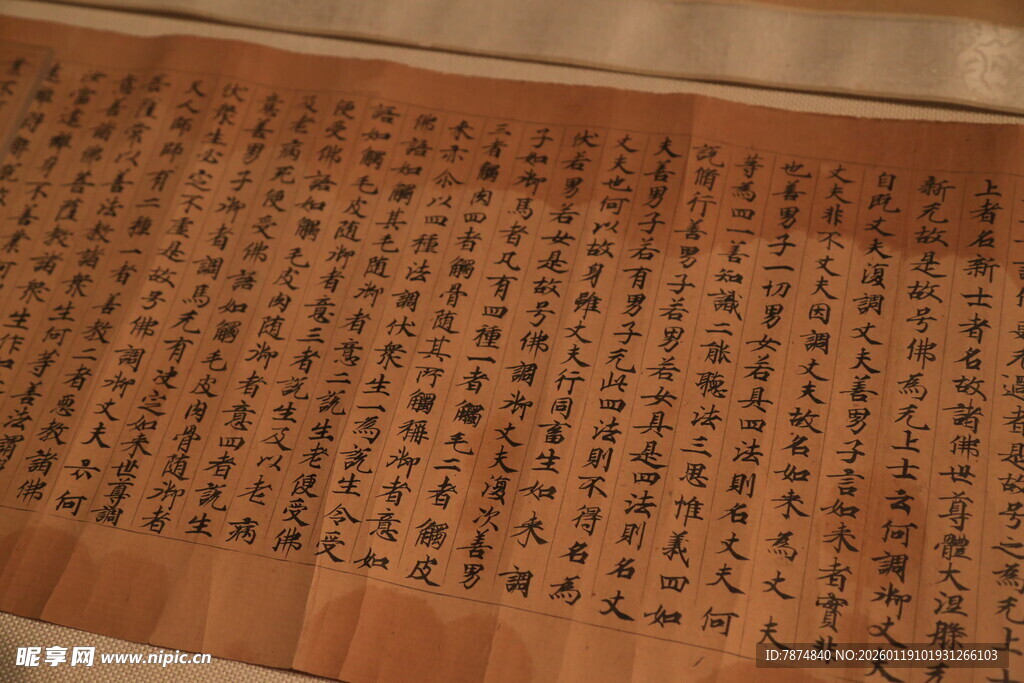 更无過者是故号之為无上士
上者名新士者名故諸佛世尊體大涅槃无
新无故是故号佛為无上士云何調御丈夫
自既丈夫復調丈夫善男子言如来者實非
丈夫非不丈夫因調丈夫故名如来為丈夫
也善男子一切男女若具四法則名丈夫何
等為四一善知識二能聽法三思惟義四如
說脩行善男子若男若女具是四法則名丈
夫善男子若有男子无此四法則不得名為
丈夫也何以故身雖丈夫行同畜生如来調
伏若男若女是故号佛調御丈夫復次善男
子如御馬者凡有四種一者觸毛二者觸皮
三者觸肉四者觸骨随其所觸稱御者意如
来亦尒以四種法調伏衆生一為說生令受
佛語如觸其毛随御者意二說生老便受佛
語如觸毛皮随御者意三者說生及以老病
便受佛語如觸毛皮肉随御者意四者說生
及老病死便受佛語如觸毛皮肉骨随御者
意善男子御者調馬无有决定如来世尊調
伏衆生必定不虚是故号佛調御丈夫云何
天人師師有二種一者善教二者惡教諸佛
菩薩常以善法教諸衆生何等善法謂
意善諸佛菩薩教諸衆生作如
汝當遠離身不善業何
遠離得解脱故
昵享网 www.nipic.cn
ID:7874840 NO:20260119101931266103